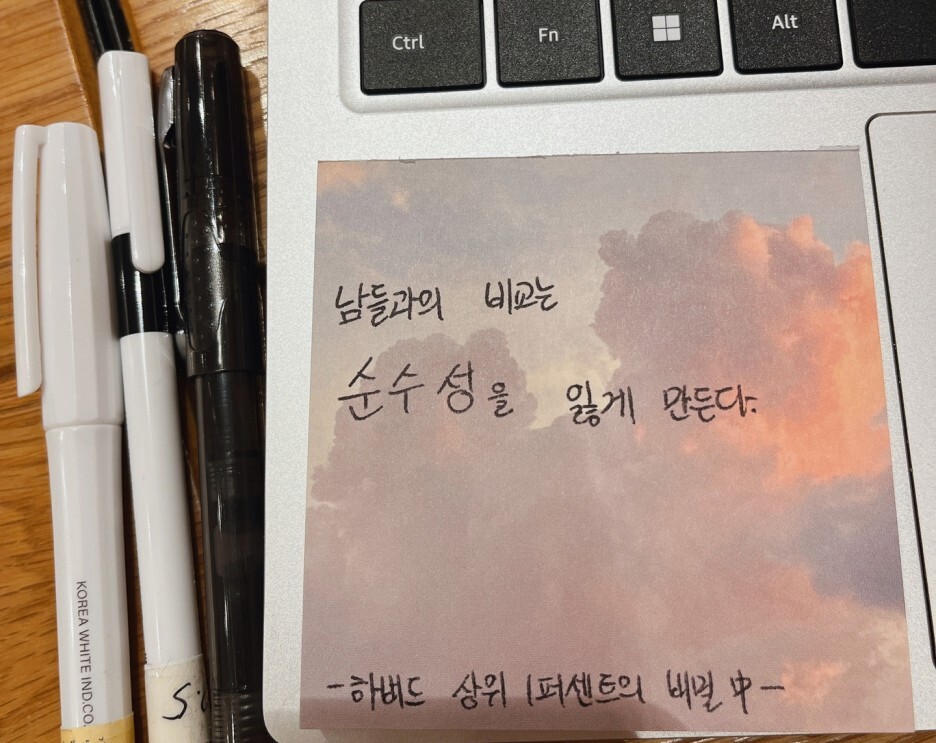 Ctrl
Fn
Alt
남들과의 비교는
순수성을 잃게 만든다.
-하버드 상위 1퍼센트의 비밀 中-
KOREA WHITE IND.CO.